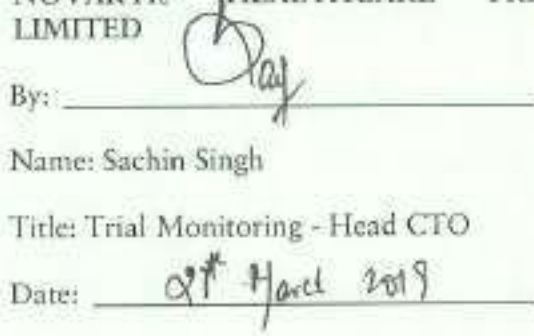 HEALTHCARE
LIMITED
By:
Name: Sachin Singh
Title: Trial Monitoring - Head CTO
Date: March 2019